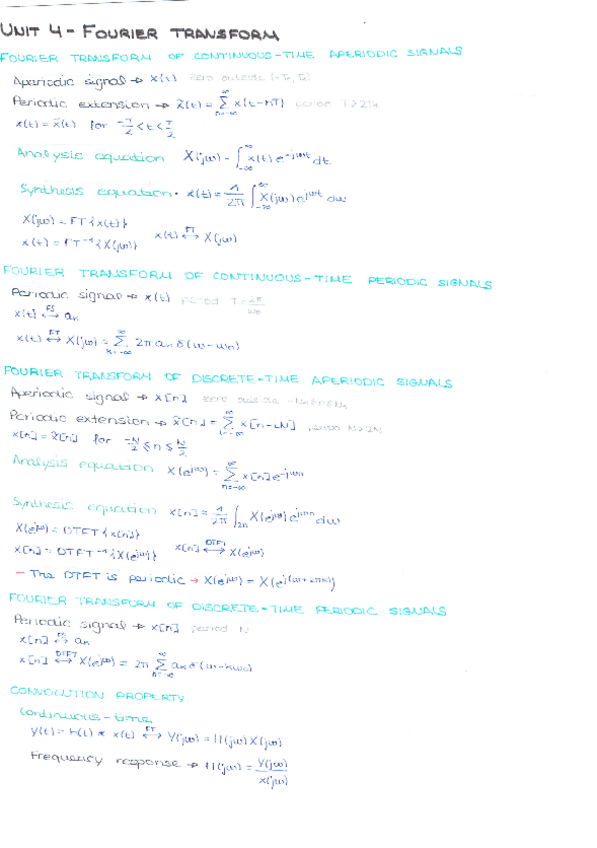 UNIT 4 - FOURIER TRANSFORM
FOURIER TRANSFORM OF CONTINUOUS-TIME APERIODIC SIGNALS
Aperiodic signal → x(t) zero outside (-T₁, T₁)
Periodic extension → x̃(t) = Σ_{n=-∞}^{∞} x(t-nT) period T>2T₁
x(t) = x̃(t) for -T/2 < t < T/2
Analysis equation X(jω) = ∫_{-∞}^{∞} x(t) e^{-jωt} dt
Synthesis equation · x(t) = 1/2π ∫_{-∞}^{∞} X(jω) e^{jωt} dω
X(jω) = FT{x(t)}
x(t) = FT⁻¹{X(jω)} x(t) ↔FT X(jω)
FOURIER TRANSFORM OF CONTINUOUS-TIME PERIODIC SIGNALS
Periodic signal → x(t) period T = 2π/ω₀
x(t) ↔FS aₖ
x(t) ↔FT X(jω) = Σ_{k=-∞}^{∞} 2π aₖ δ(ω-
FOURIER TRANSFORM OF DISCRETE-TIME APERIODIC SIGNALS
Aperiodic signal → x[n] zero outside
Periodic extension → x̃[n] = Σ x[n-LN] period
x[n] = x̃[n] for -N/2 ≤ n ≤ N/2
Analysis equation X(e^{jω}) = Σ_{n=-∞}^{∞} x[n] e^{-jωn}
Synthesis equation x[n] = 1/2π ∫_{2π} X(e^{jω}) e^{jωn} dω
X(e^{jω}) = DTFT{x[n]}
x[n] = DTFT⁻¹{X(e^{jω})} x[n] ↔DTFT X(e^{jω})
- The DTFT is periodic → X(e^{jω}) = X(e^{j(ω+2πN)})
FOURIER TRANSFORM OF DISCRETE-TIME PERIODIC SIGNALS
Periodic signal → x[n] period N
x[n] ↔FS aₖ
x[n] ↔DTFT X(e^{jω}) = 2π Σ_{k=-∞}^{∞} aₖ δ(ω-kω₀)
CONVOLUTION PROPERTY
Continuous-time
y(t) = h(t) * x(t) ↔FT Y(jω) = H(jω) X(jω)
Frequency response → H(jω) = Y(jω)/X(jω)